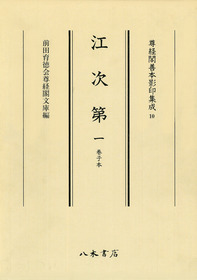 尊経閣善本影印集成 10
江次第 一
巻子本
前田育徳会尊経閣文庫編
八木書店